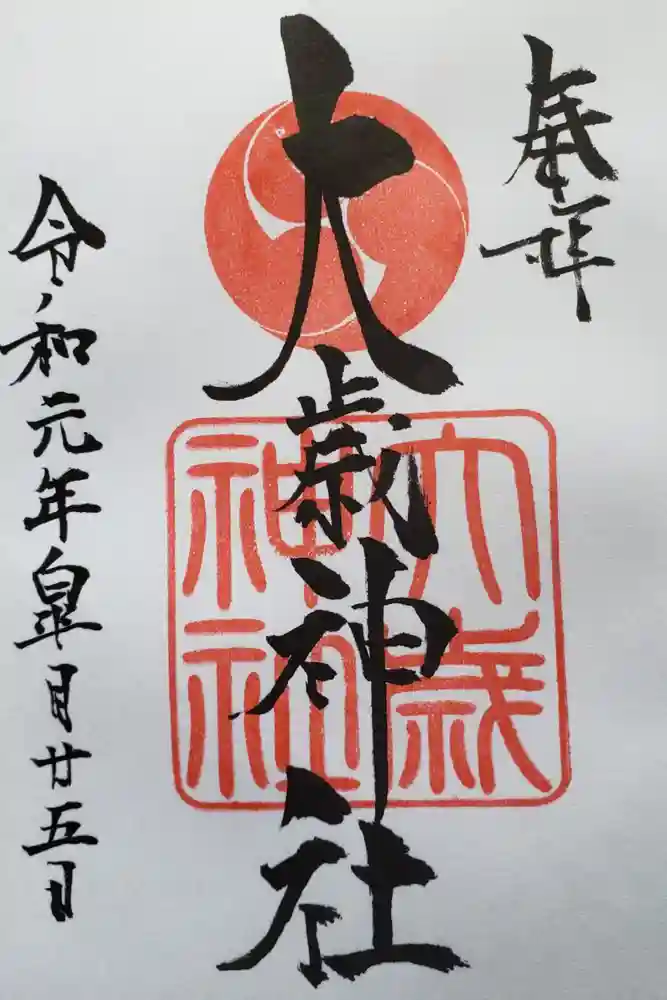 奉拝
大歳神社
大歳
神社
令和元年皐月廿五日